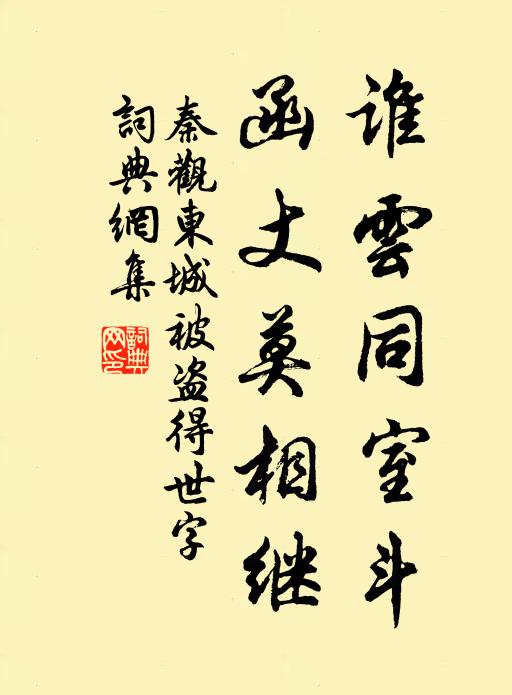 谁雲同室斗
函丈莫相继
秦觀東城被盗得世字
詞典網集
詞典网印